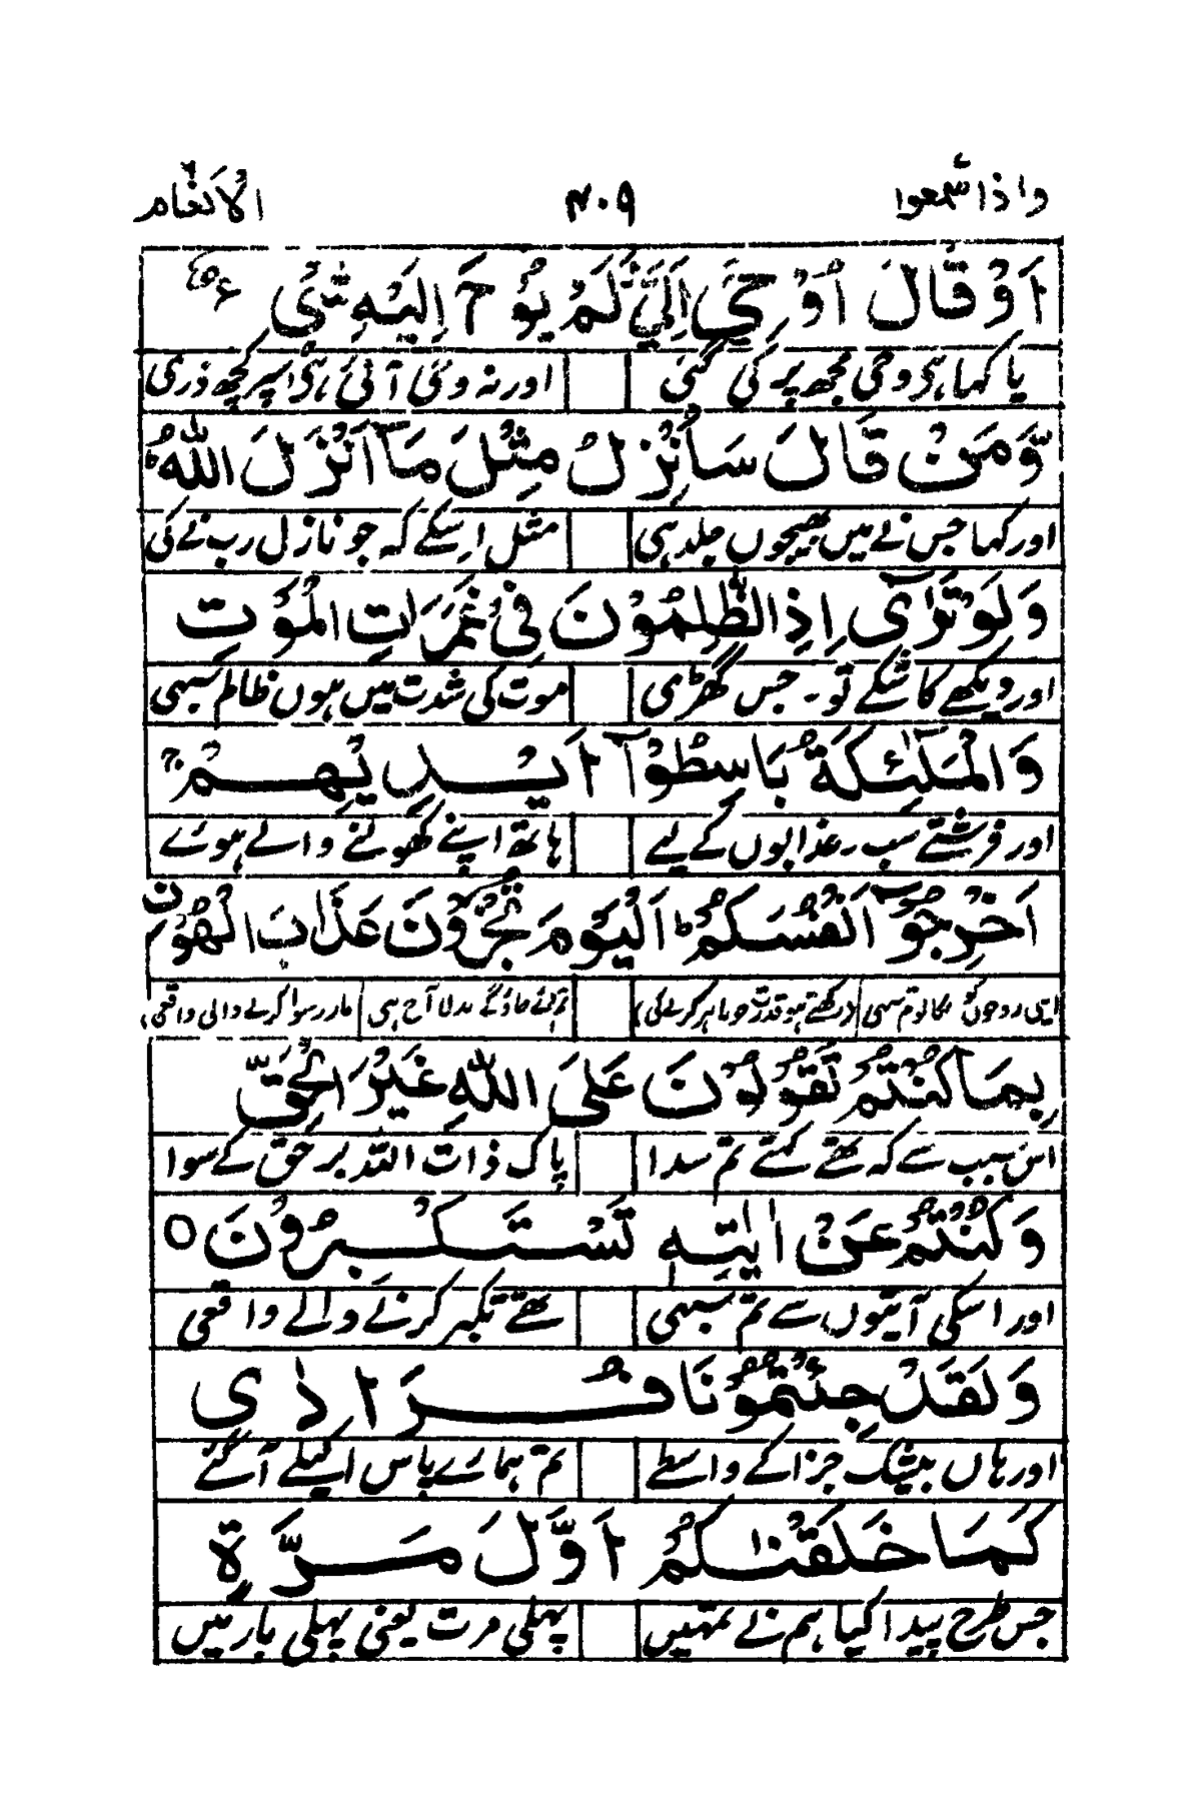 واذا سمعوا ۴۰۹ الانعام
اَوْ قَالَ اُوْحِیَ اِلَیَّ وَلَمْ یُوْحَ اِلَیْهِ شَیْءٌ
یا کہا ہو وحی مجھ پر کی گئی اور نہ وحی آئی ہو اسپر کچھ ذری
وَّمَنْ قَالَ سَاُنْزِلُ مِثْلَ مَاۤ اَنْزَلَ اللّٰهُ ؕ
اور کہا جس نے میں بھیجوں جلد ہی مثل اسکے کہ جو نازل رب نے کی
وَلَوْ تَرٰۤی اِذِ الظّٰلِمُوْنَ فِیْ غَمَرَاتِ الْمَوْتِ
اور دیکھے کاشکے تو۔ جس گھڑی موت کی شدت میں ہوں ظالم سبھی
وَالْمَلٰٓئِكَةُ بَاسِطُوْۤا اَیْدِیْهِمْ ۚ
اور فرشتے سب۔ عذابوں کے لیے ہاتھ اپنے کھولنے والے ہوئے
اَخْرِجُوْۤا اَنْفُسَكُمْ ؕ اَلْیَوْمَ تُجْزَوْنَ عَذَابَ الْهُوْنِ
اپنی روحوں کو نکالو تم سبھی (رکھتے ہو قدرت جو باہر کرنے کی) بدلا آج ہی مار رسوا کرنے والی واقعی
بِمَا كُنْتُمْ تَقُوْلُوْنَ عَلَی اللّٰهِ غَیْرَ الْحَقِّ
اس سبب سے کہ تھے کہتے تم سدا پاک ذات اللہ پر حق کے سوا
وَكُنْتُمْ عَنْ اٰیٰتِهٖ تَسْتَكْبِرُوْنَ ○
اور اسکی آیتوں سے تم سبھی تھے تکبر کرنے والے واقعی
وَلَقَدْ جِئْتُمُوْنَا فُرَادٰی
اور ہاں بیشک جزا کے واسطے تم ہمارے پاس اکیلے آگئے
كَمَا خَلَقْنٰكُمْ اَوَّلَ مَرَّةٍ
جس طرح پیدا کیا ہم نے تمہیں پہلی مرت یعنی پہلی بار میں